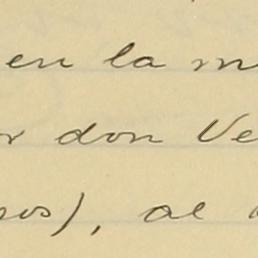 en la m
or don Ve
sos), al